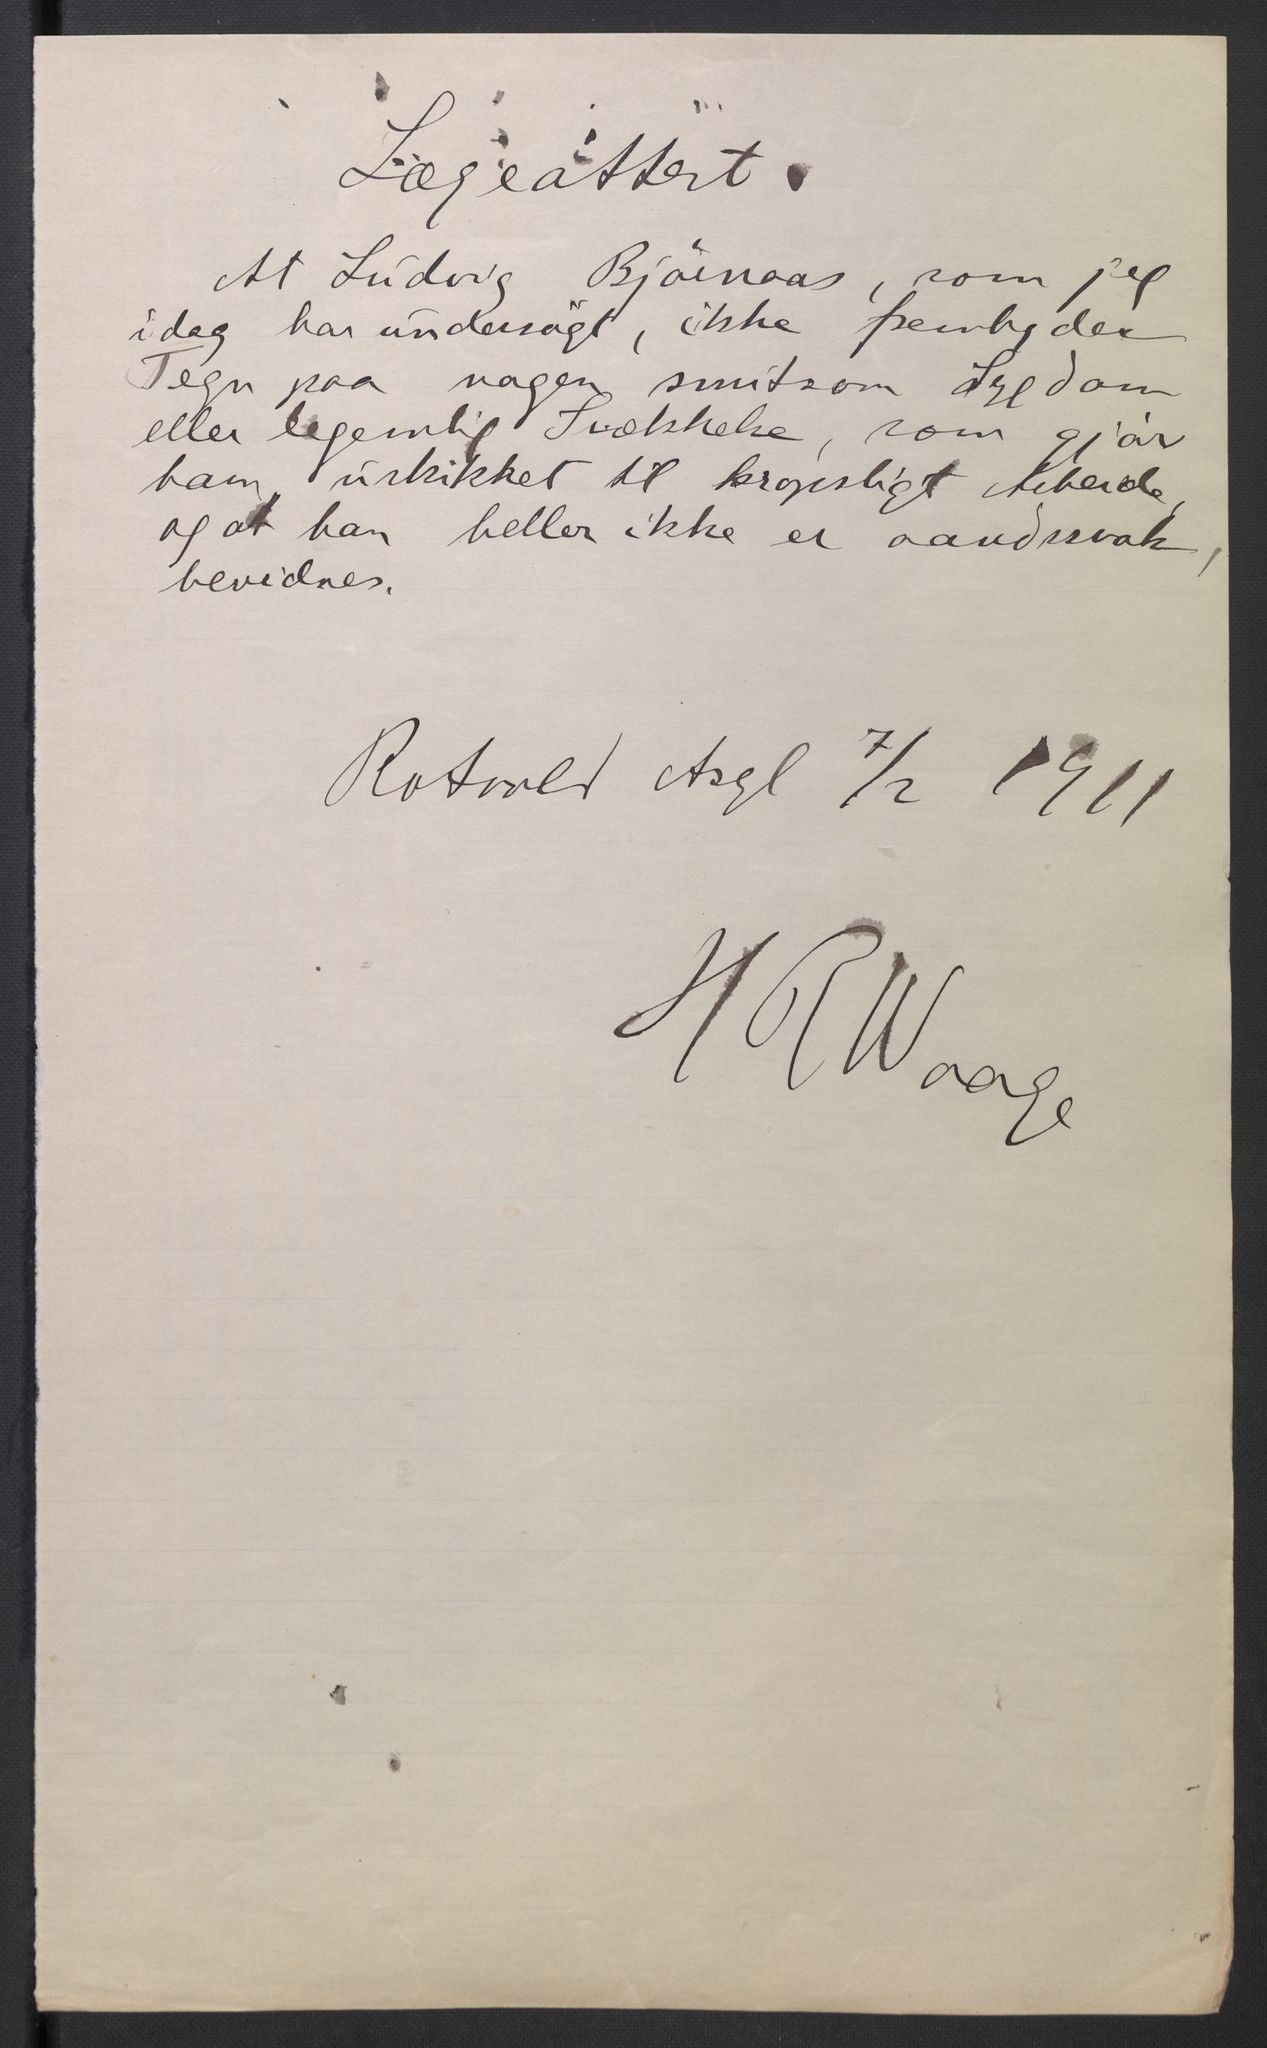 Lægeattest.
At Ludvig Björnaas, som jeg
idag har undersögt, ikke frembyder
Tegn paa nogen smitsom Sygdom
eller legemlig Svækkelse, som gjör
ham uskikket til kropsligt Arbeide,
og at han heller ikke er aandssvak,
bevidnes.
Rotvold Asyl 7/2 1911
H R Waage